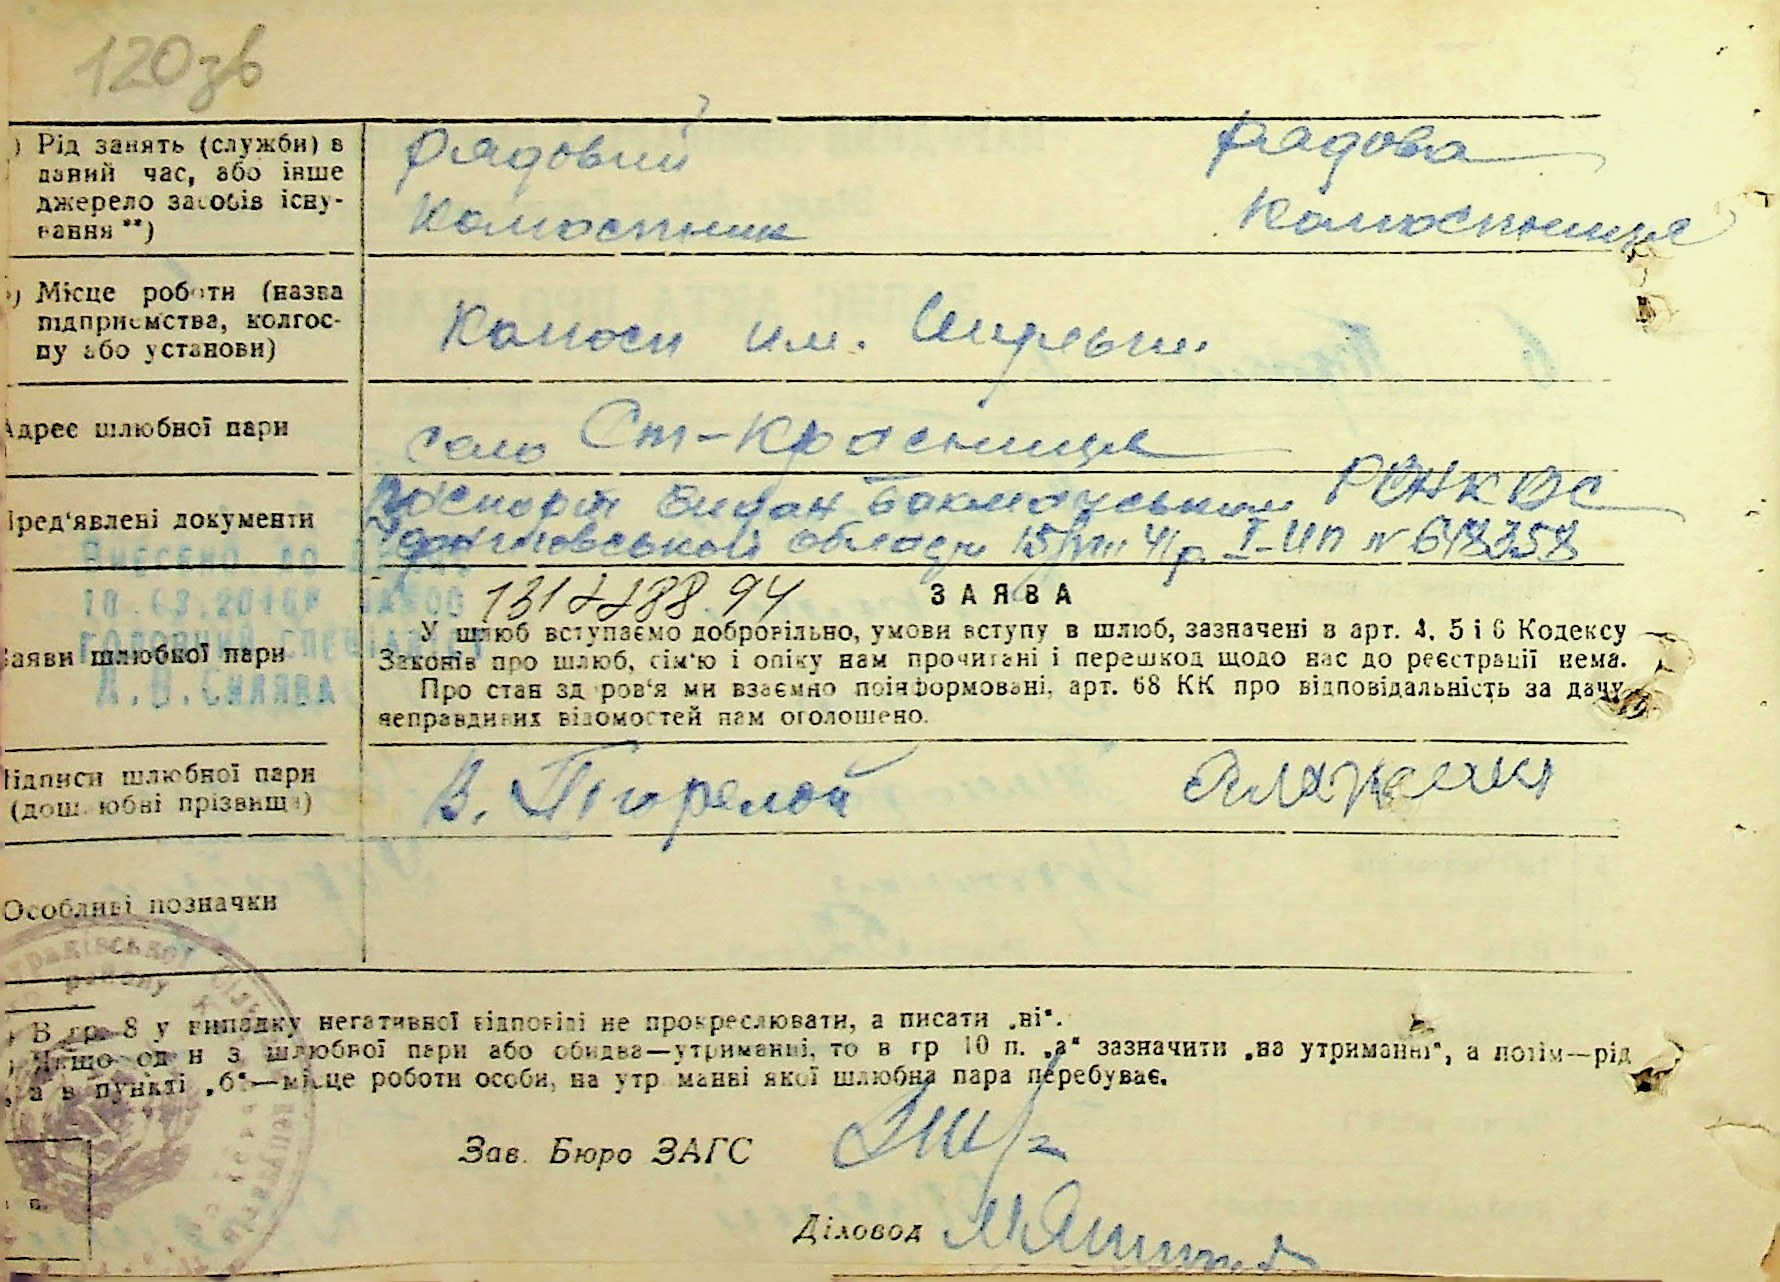 120зв
) Рід занять (служби) в
даний час, або інше
джерело засобів існу-
вання **)
рядовий
колгоспник
рядова
колгоспниця
) Місце роботи (назва
підприємства, колгос-
пу або установи)
Колгосп им.
Адрес шлюбної пари
село Ст-Кросниця
Пред'явлені документи
паспорт видан Бахмачським
області 15/VIII 41р. I-ИП № 648358
Внесено до
18.03.2016
головний спеціаліст
ЗАЯВА
У шлюб вступаємо добровільно, умови вступу в шлюб, зазначені в арт. 4, 5 і 6 Кодексу
Законів про шлюб, сім'ю і опіку нам прочитані і перешкод щодо нас до реєстрації нема.
Заяви шлюбної пари
Про стан здоров'я ми взаємно поінформовані, арт. 68 КК про відповідальність за дачу
неправдивих відомостей нам оголошено.
Підписи шлюбної пари
(дошлюбні прізвища)
В. Погорелой
Особливі позначки
) В гр. 8 у випадку негативної відповіді не прокреслювати, а писати „ні“.
) Якщо один з шлюбної пари або обидва—утриманці, то в гр 10 п. „а“ зазначити „на утриманні“, а потім—рід
, а в пункті „б“—місце роботи особи, на утриманні якої шлюбна пара перебуває.
Зав. Бюро ЗАГС
Діловод